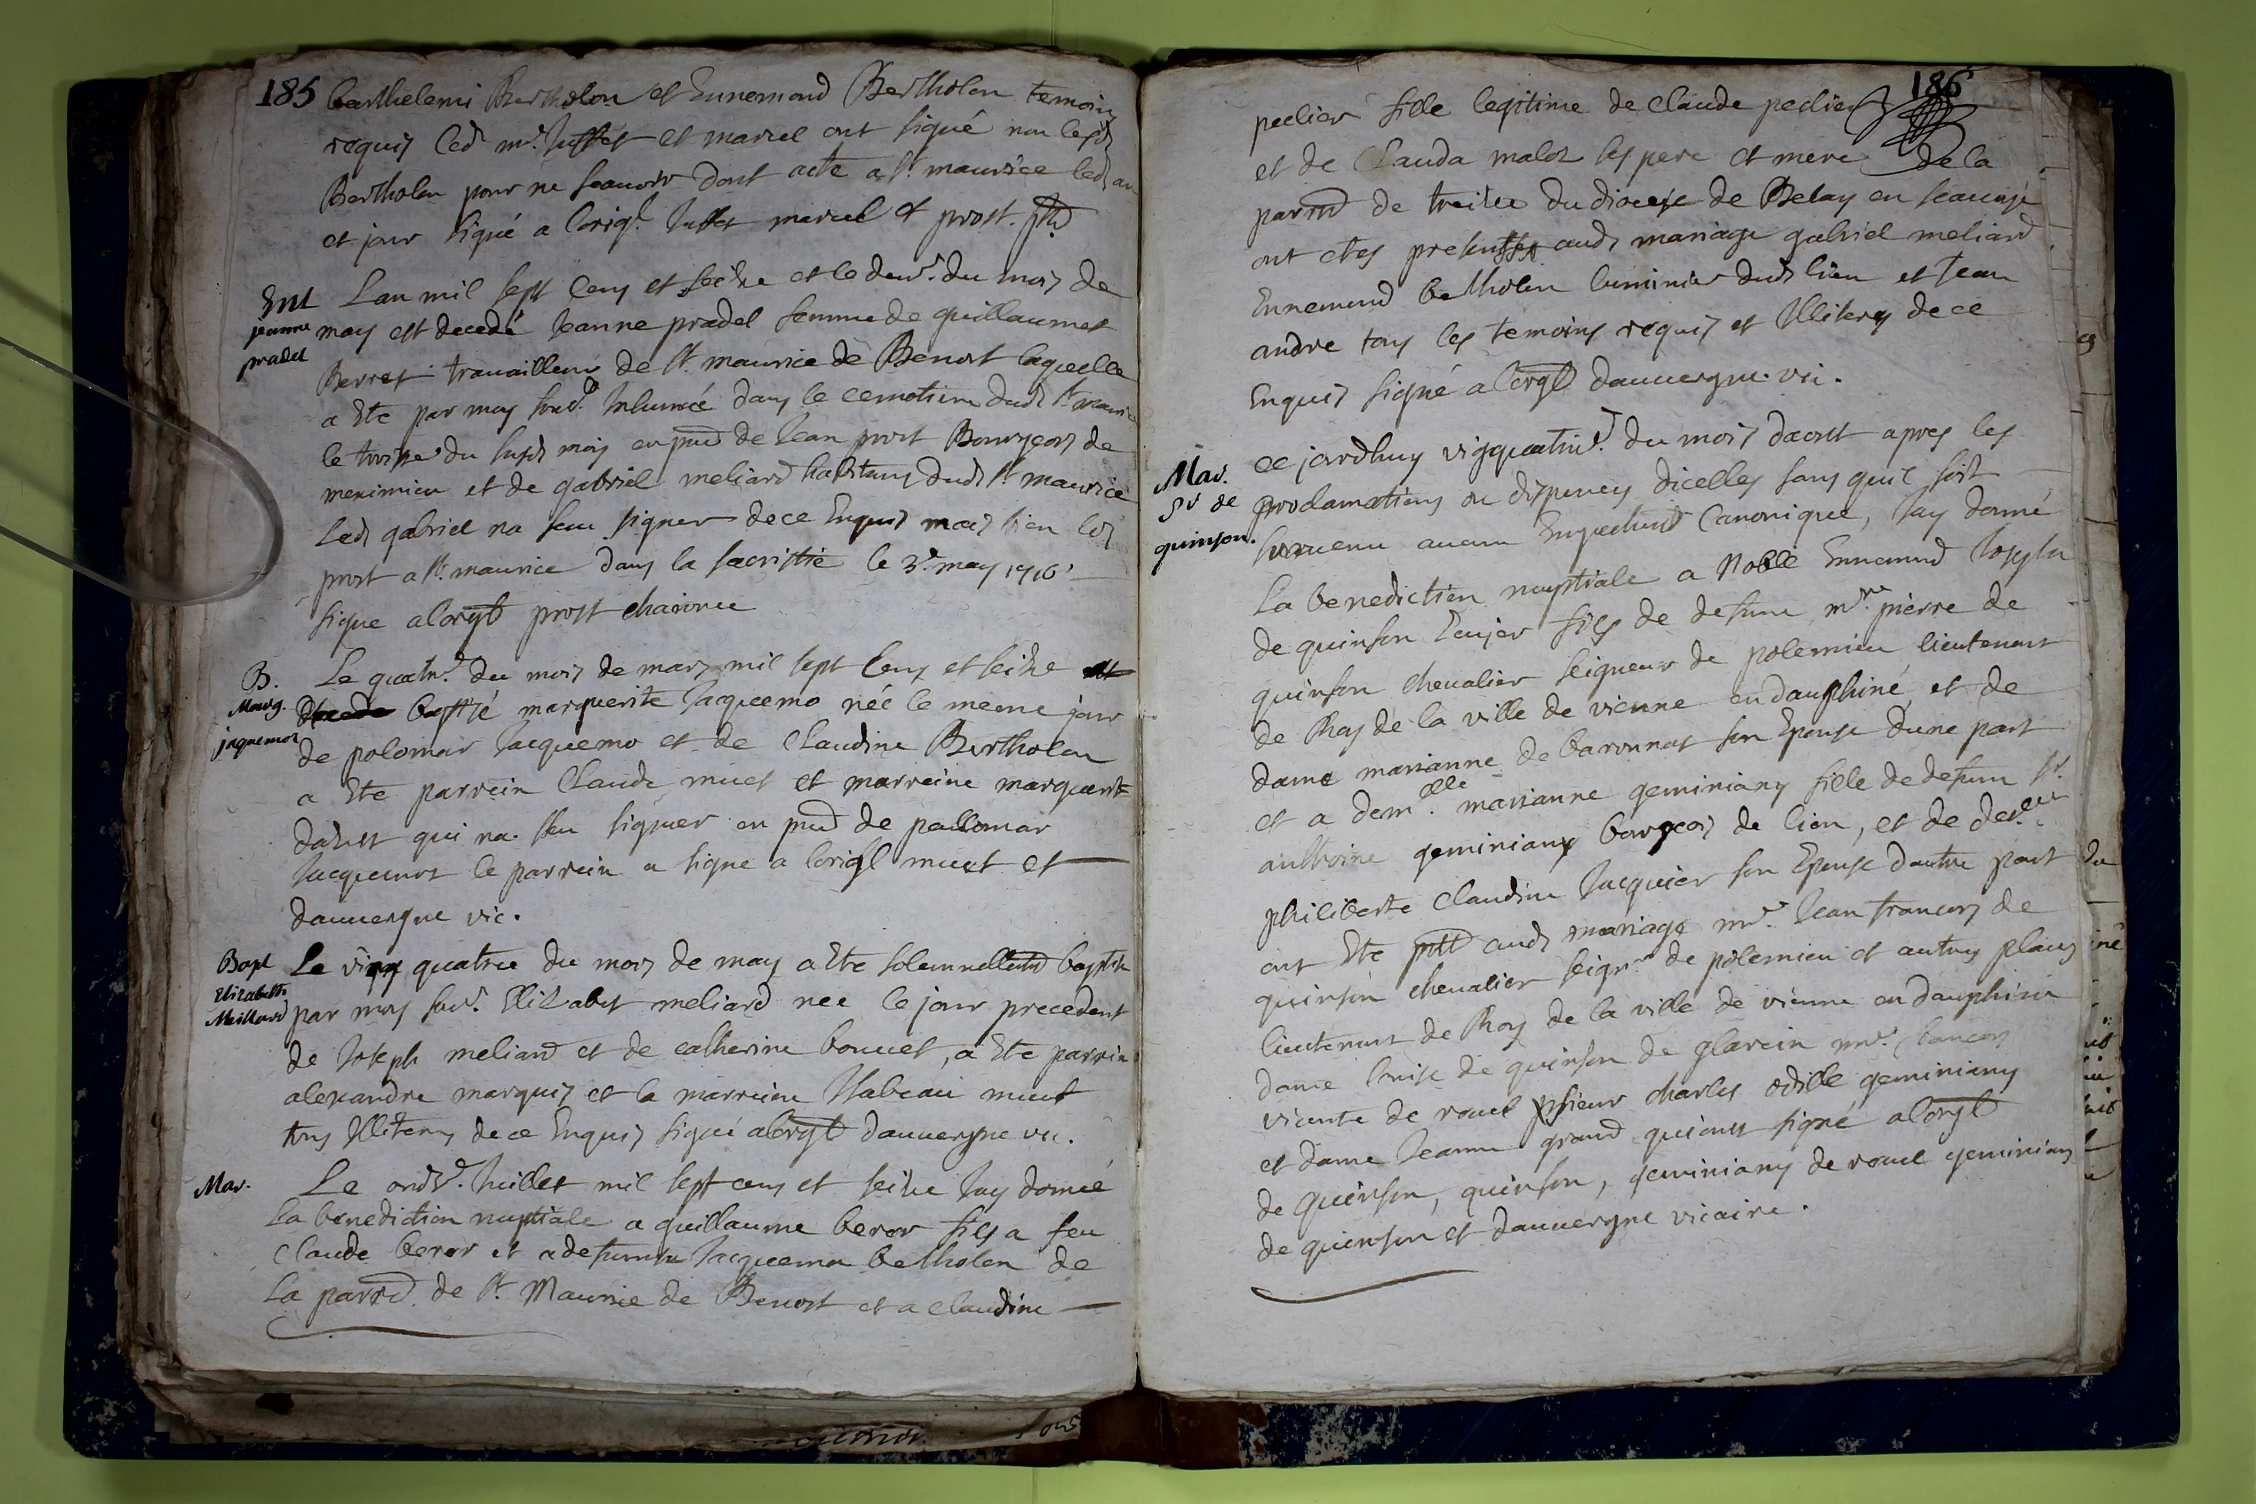 185
barthelemi Bertholon et Ennemond Bertholon temoins
requis led mr. Juffet et marcel ont signé non lesd
Bertholon pour ne scauoir dont acte a st. maurice led an
et jour signé a lorigl. Juffet marcel et prost. ptre
Ent
jeanne
pradel
Lan mil sept cens et seize et le deux. du mois de
may est decedé Jeanne pradel femme de guillaumet
Berret trauailleur de st. maurice de Benost laquelle
a Ete par moy sousd. Inhumée dans le cemetiere dud st mauri
le troise du susd mois en pnce de Jean prost Bourgeois de
meximieu et de gabriel meliard habitans dud st maurice
Led gabriel na sceu signer de ce Enquis mais bien led
prost a st. maurice dans la sacristie le 3e may 1716
signe a lorgl prost chanoine
B.
Marg.
jaquemot
Le quatr. du mois de mars mil sept Cens et seize
baptisé marguerite Jacquemo née le meme jour
de polomar Jacquemo et de Claudine Bertholon
a Ete parrein Claude muet et marreine marguerite
qui na sceu signer en pnce de pallomar
Jacquemot le parrein a signe a lorigl muet et
dauuergne vic.
Bapt
Elizabeth
Meillard
Le vingt quatre du mois de may a Ete solemnellemt baptise
par moy sousd. Elizabet meliard nee le jour precedent
de Joseph meliard et de catherine bouuet, a Ete parrein
alexandre marquis et la marreine Isabeau muet
tous Illiteres de ce Enquis signé a lorgl dauuergne vic.
Mar.
Le onze. Juillet mil sept cens et seize Jay donné
la benediction nuptiale a guillaume beror fils a feu
Claude beror et a defunte Jacquema betholon de
La parre. de st. Maurice de Benost et a claudine
186
peclier fille legitime de Claude peclier
et de Clauda malot ses pere et mere de la
parre de du diocese de Belay en
ont etes presents aud mariage gabriel meliard
Ennemond betholon luminier dud lieu et Jean
andre tous les temoins requis et Illiteres de ce
Enquis signé a lorgl dauuergne. vic.
Mar.
Sr de
quinson.
ce jourdhuy vigquatrie. du mois daoust apres les
proclamations ou dispences dicelles sans quil soit
suruenu aucun Empechemt Canonique, Jay donné
La benediction nuptiale a Noble Ennemond Joseph
de quinson Ecujer fils de defunt mre. pierre de
quinson cheualier seigneur de polemieu lieutenant
de Roy de la ville de vienne en dauphiné, et de
dame marianne de baronnat son Epouse dune part
et a demelle. marianne geminiany fille de defunt sr.
anthoine geminiany bourgeois de lion, et de delle
philiberte Claudine Jacquier son Epouse dautre part
ont Ete pntt aud mariage mre. Jean francois de
quinson cheualier seignr de polemieu et autres places
lieutenant de Roy de la ville de vienne en dauphiné
dame louise de quinson de glarein mre. francois
vicante de rouel sieur charles odille geminiany
et dame Jeanne grand qui ont signé a lorgl
de quinson, quinson, geminiany de rouel geminiany
de quinson et dauuergne vicaire.